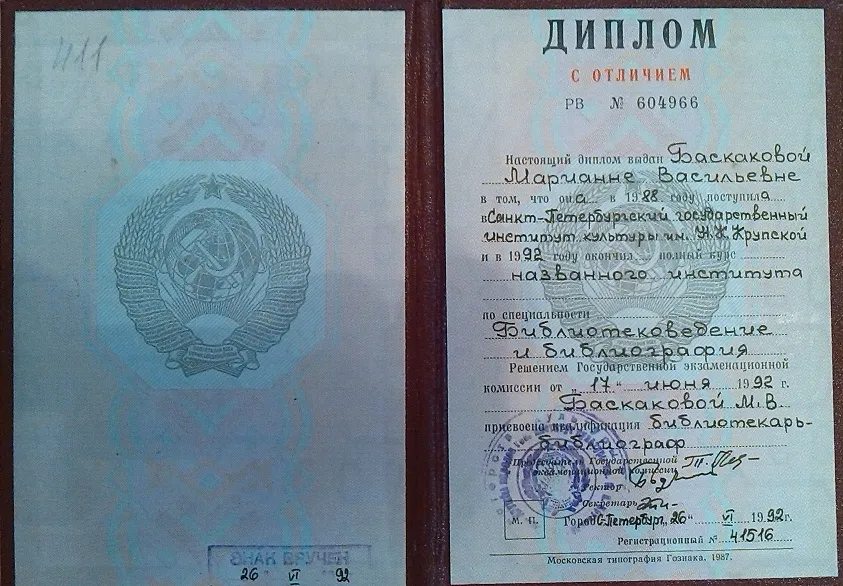 411
ЗНАК ВРУЧЕН
26 VI 92
ДИПЛОМ
С ОТЛИЧИЕМ
РВ № 604966
Настоящий диплом выдан Баскаковой
Марианне Васильевне
в том, что она в 1988 году поступила
в Санкт-Петербургский государственный
институт культуры им. Н.К.Крупской
и в 1992 году окончил полный курс
названного института
по специальности
Библиотековедение
и библиография
Решением Государственной экзаменационной
комиссии от „17“ июня 1992 г.
Баскаковой М.В.
присвоена квалификация библиотекарь-
библиограф
Председатель Государственной
экзаменационной комиссии
Ректор
Секретарь
М. П.
Город С-Петербург, 26“ VI 1992г.
Регистрационный № 41516
Московская типография Гознака. 1987.